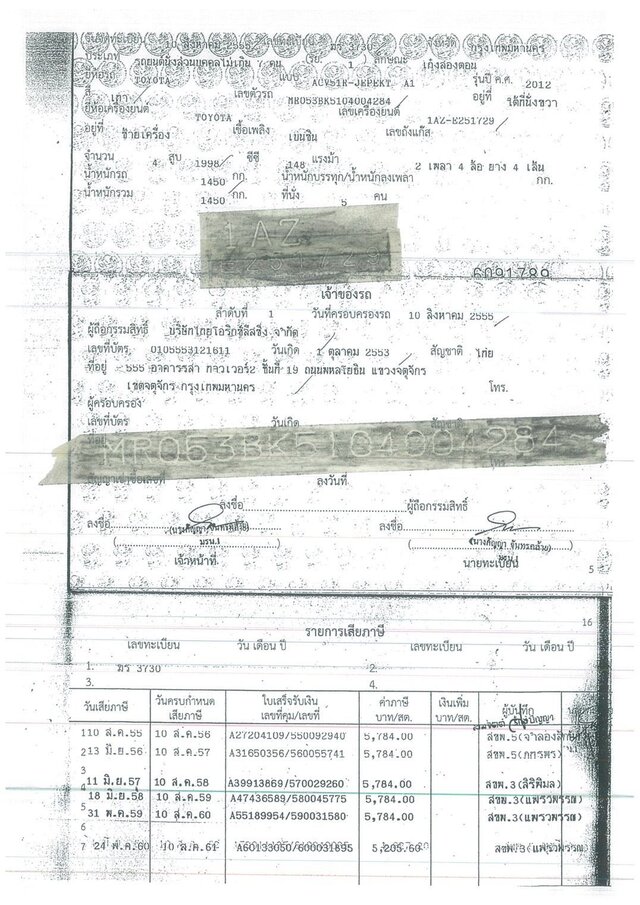 วันจดทะเบียน 10 สิงหาคม 2555 เลขทะเบียน ฆร 3730 จังหวัด กรุงเทพมหานคร
ประเภท รถยนต์นั่งส่วนบุคคลไม่เกิน 7 คน (รย. 1 ลักษณะ เก๋งสองตอน
ยี่ห้อรถ TOYOTA แบบ ACV51R-JEPEKT A1 รุ่นปี ค.ศ. 2012
สี เทา เลขตัวรถ MR053BK5104004284 อยู่ที่ ใต้ที่นั่งขวา
ยี่ห้อเครื่องยนต์ TOYOTA เลขเครื่องยนต์ 1AZ-E251729
อยู่ที่ ซ้ายเครื่อง เชื้อเพลิง เบนซิน เลขถังแก๊ส
จำนวน 4 สูบ 1998 ซีซี 148 แรงม้า 2 เพลา 4 ล้อ ยาง 4 เส้น
น้ำหนักรถ 1450 กก. น้ำหนักบรรทุก/น้ำหนักลงเพลา กก.
น้ำหนักรวม 1450 กก. ที่นั่ง 5 คน
1AZ
6091789
เจ้าของรถ
ลำดับที่ 1 วันที่ครอบครองรถ 10 สิงหาคม 2555
ผู้ถือกรรมสิทธิ์ บริษัทไทยโอริกซ์ลีสซิ่ง จำกัด
เลขที่บัตร 0105553121611 วันเกิด 1 ตุลาคม 2553 สัญชาติ ไทย
ที่อยู่ 555 อาคารรสา ทาวเวอร์2 ชั้นที่ 19 ถนนพหลโยธิน แขวงจตุจักร
เขตจตุจักร กรุงเทพมหานคร โทร.
ผู้ครอบครอง
เลขที่บัตร วันเกิด สัญชาติ
ที่อยู่ MR053BK5104004284
โทร.
สัญญาเช่าซื้อเลขที่ ลงวันที่
ลงชื่อ ผู้ถือกรรมสิทธิ์
ลงชื่อ ลงชื่อ
(นางกัญญา จันทรคล้าย) (นางกัญญา จันทรคล้าย)
เจ้าหน้าที่ นายทะเบียน
5
16
รายการเสียภาษี
เลขทะเบียน วัน เดือน ปี เลขทะเบียน วัน เดือน ปี
1. ฆร 3730 2.
3. 4.
วันเสียภาษี วันครบกำหนดเสียภาษี ใบเสร็จรับเงิน เล่มที่คุม/เลขที่ ค่าภาษี บาท/สต. เงินเพิ่ม บาท/สต. ผู้บันทึก
1 10 ส.ค.55 10 ส.ค.56 A27204109/550092940 5,784.00
2 13 มิ.ย.56 10 ส.ค.57 A31650356/560055741 5,784.00
3
11 มิ.ย.57 10 ส.ค.58 A39913869/570029260 5,784.00 สขพ.3(สิริพิมล)
18 มิ.ย.58 10 ส.ค.59 A47436589/580045775 5,784.00 สขพ.3(แพรวพรรณ)
31 พ.ค.59 10 ส.ค.60 A55189954/590031580 5,784.00 สขพ.3(แพรวพรรณ)
6
7 24 พ.ค.60 10 ส.ค.61 A60133050/600031895 5,205.60 สขพ.3(แพรวพรรณ)